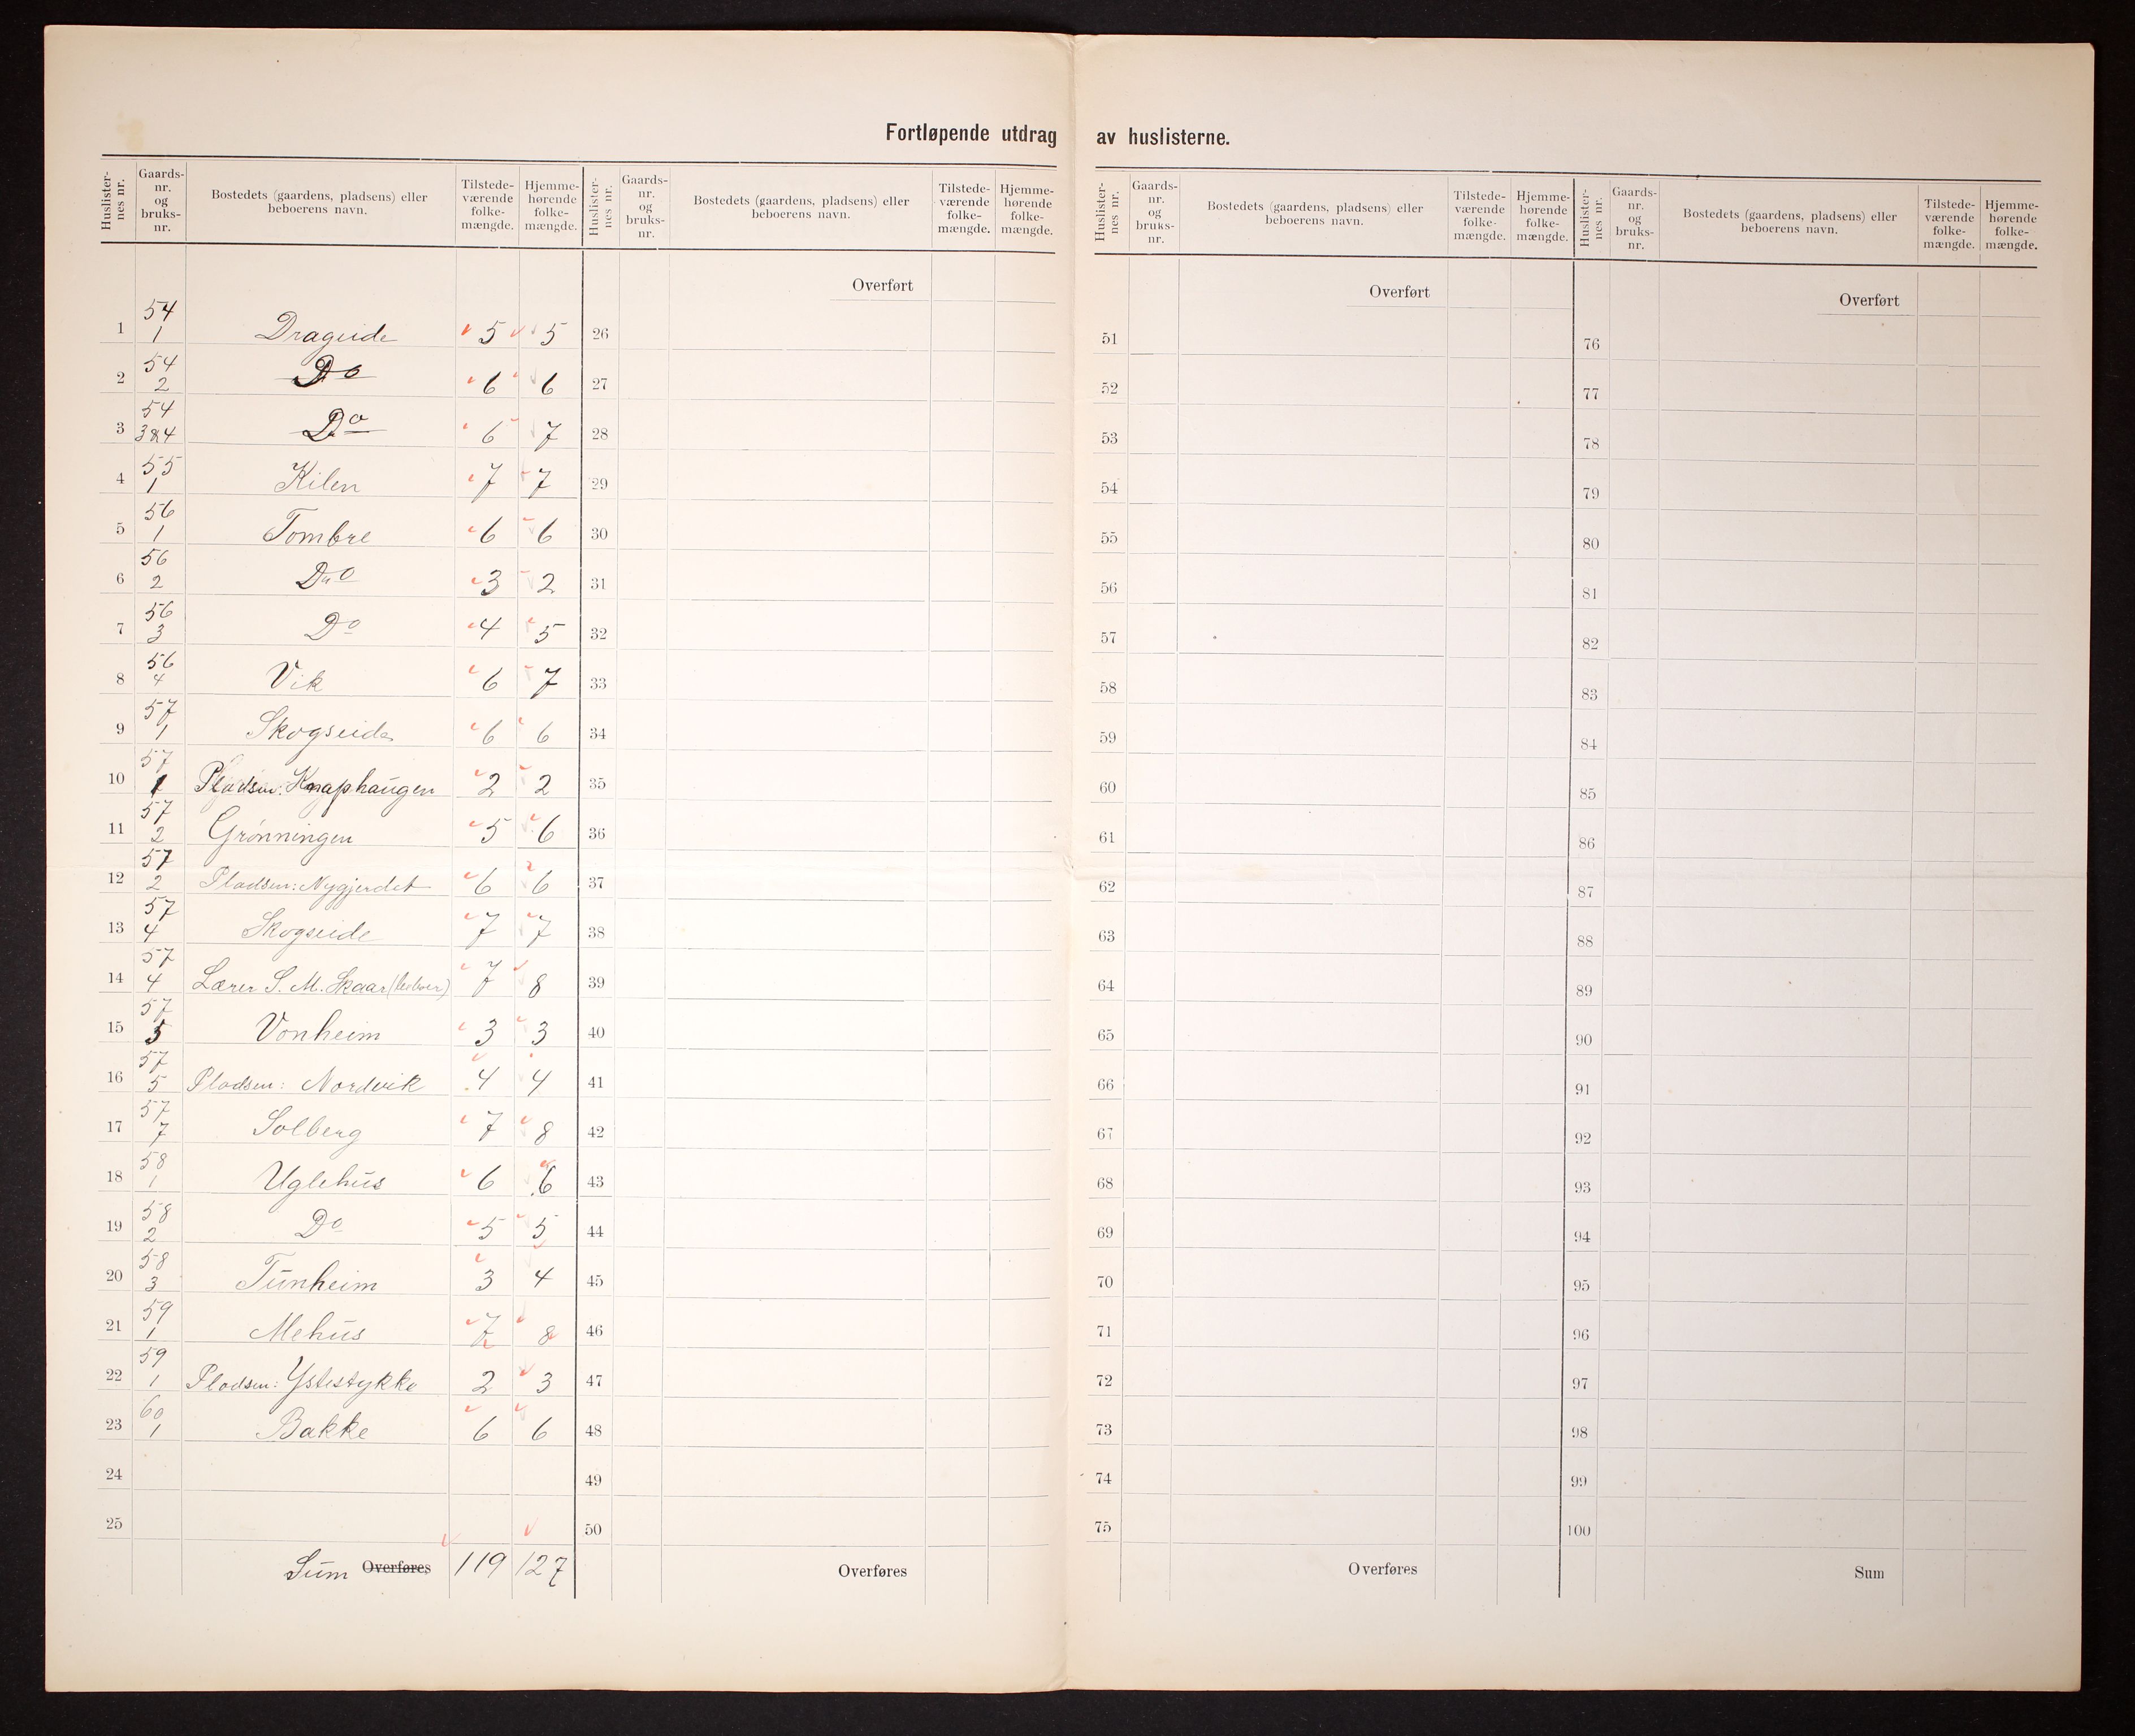 Fortløpende utdrag av huslisterne.
Huslister-nes nr. | Gaards-nr. og bruks-nr. | Bostedets (gaardens, pladsens) eller beboerens navn. | Tilstede-værende folke-mængde. | Hjemme-hørende folke-mængde. | Huslister-nes nr. | Gaards-nr. og bruks-nr. | Bostedets (gaardens, pladsens) eller beboerens navn. | Tilstede-værende folke-mængde. | Hjemme-hørende folke-mængde. | Huslister-nes nr. | Gaards-nr. og bruks-nr. | Bostedets (gaardens, pladsens) eller beboerens navn. | Tilstede-værende folke-mængde. | Hjemme-hørende folke-mængde. | Huslister-nes nr. | Gaards-nr. og bruks-nr. | Bostedets (gaardens, pladsens) eller beboerens navn. | Tilstede-værende folke-mængde. | Hjemme-hørende folke-mængde.
Overført Overført Overført
1 54/1 Drageide 5 5 26 51 76
2 54/2 Do 6 6 27 52 77
3 54/3&4 Do 6 7 28 53 78
4 55/1 Kilen 7 7 29 54 79
5 56/1 Tombre 6 6 30 55 80
6 56/2 Do 3 2 31 56 81
7 56/3 Do 4 5 32 57 82
8 56/4 Vik 6 7 33 58 83
9 57/1 Skogseide 6 6 34 59 84
10 57/1 Pladsen: Knaphaugen 2 2 35 60 85
11 57/2 Grønningen 5 6 36 61 86
12 57/2 Pladsen: Nygjerdet 6 6 37 62 87
13 57/4 Skogseide 7 7 38 63 88
14 57/4 Lærer S. M. Skaar (beboer) 7 8 39 64 89
15 57/5 Vonheim 3 3 40 65 90
16 57/5 Pladsen: Nordvik 4 4 41 66 91
17 57/7 Solberg 7 8 42 67 92
18 58/1 Uglehus 6 6 43 68 93
19 58/2 Do 5 5 44 69 94
20 58/3 Tunheim 3 4 45 70 95
21 59/1 Mehus 7 8 46 71 96
22 59/1 Pladsen: Ystestykke 2 3 47 72 97
23 60/1 Bakke 6 6 48 73 98
24 49 74 99
25 50 75 100
Sum Overføres 119 127 Overføres Overføres Sum